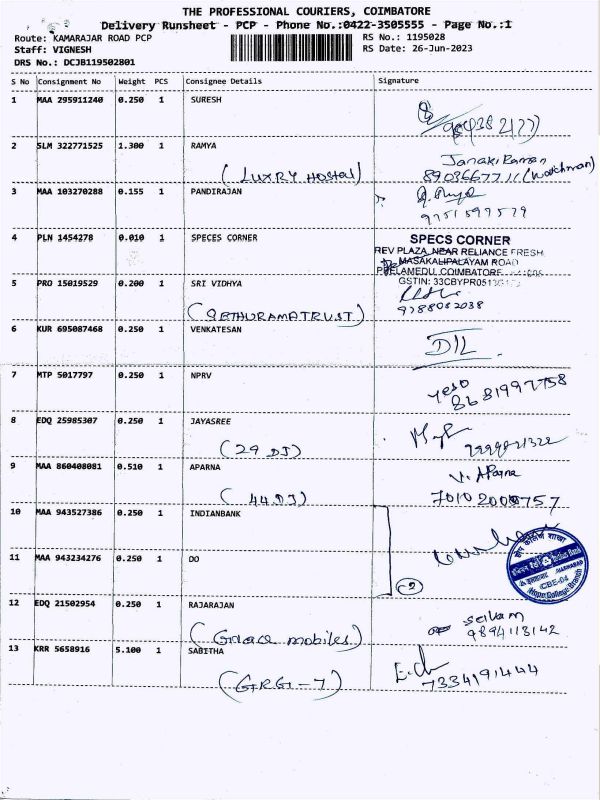 THE PROFESSIONAL COURIERS, COIMBATORE
Delivery Runsheet - PCP - Phone No.:0422-3505555 - Page No.:1
Route: KAMARAJAR ROAD PCP
RS No.: 1195028
Staff: VIGNESH
RS Date: 26-Jun-2023
DRS No.: DCJB119502801
S No Consignment No Weight PCS Consignee Details Signature
1 MAA 295911240 0.250 1 SURESH
2 SLM 322771525 1.300 1 RAMYA
Janaki Raman
(LUXRY HOSTEL) (watchman)
3 MAA 103270288 0.155 1 PANDIRAJAN
9751597579
4 PLN 1454278 0.010 1 SPECES CORNER
SPECS CORNER
REV PLAZA, NEAR RELIANCE FRESH
MASAKALIPALAYAM ROAD
PEELAMEDU, COIMBATORE
GSTIN: 33CBYPR0513
5 PRO 15019529 0.200 1 SRI VIDHYA
(SETHURAMA TRUST) 9788082038
6 KUR 695087468 0.250 1 VENKATESAN
D/L
7 MTP 5017797 0.250 1 NPRV
8681997758
8 EDQ 25985307 0.250 1 JAYASREE
(29 DJ)
9 MAA 860408081 0.510 1 APARNA
V. APARNA
(44 DJ)
10 MAA 943527386 0.250 1 INDIANBANK
11 MAA 943234276 0.250 1 DO
2
Indian Bank
CBE-04
12 EDQ 21502954 0.250 1 RAJARAJAN
selvam
(Grace mobiles) 9894113142
13 KRR 5658916 5.100 1 SABITHA
(GRG-7) 7334191444